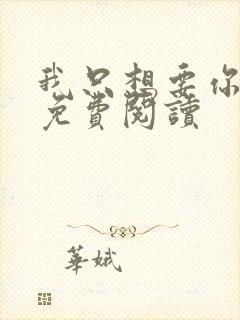 我只想要你
免費閱讀
華娥